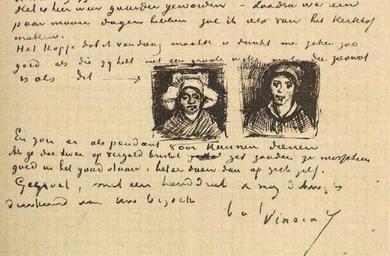 is hier veel guurder geworden – Zoodra we een
paar mooie dagen hebben zal ik van het kerkhof
maken.
Het kopje dat ik vandaag maakte is dunkt me zeker zoo
goed als die gij hebt met een groote witte die zoowat
is als dit
En zou er als pendant voor kunnen dienen
Als ge die twee op verguld bristol zet zouden ze misschien
goed in het goud staan. beter doen dan op zich zelf.
Gegroet, met een handdruk & nog
denkend aan uw bezoek
Vincent